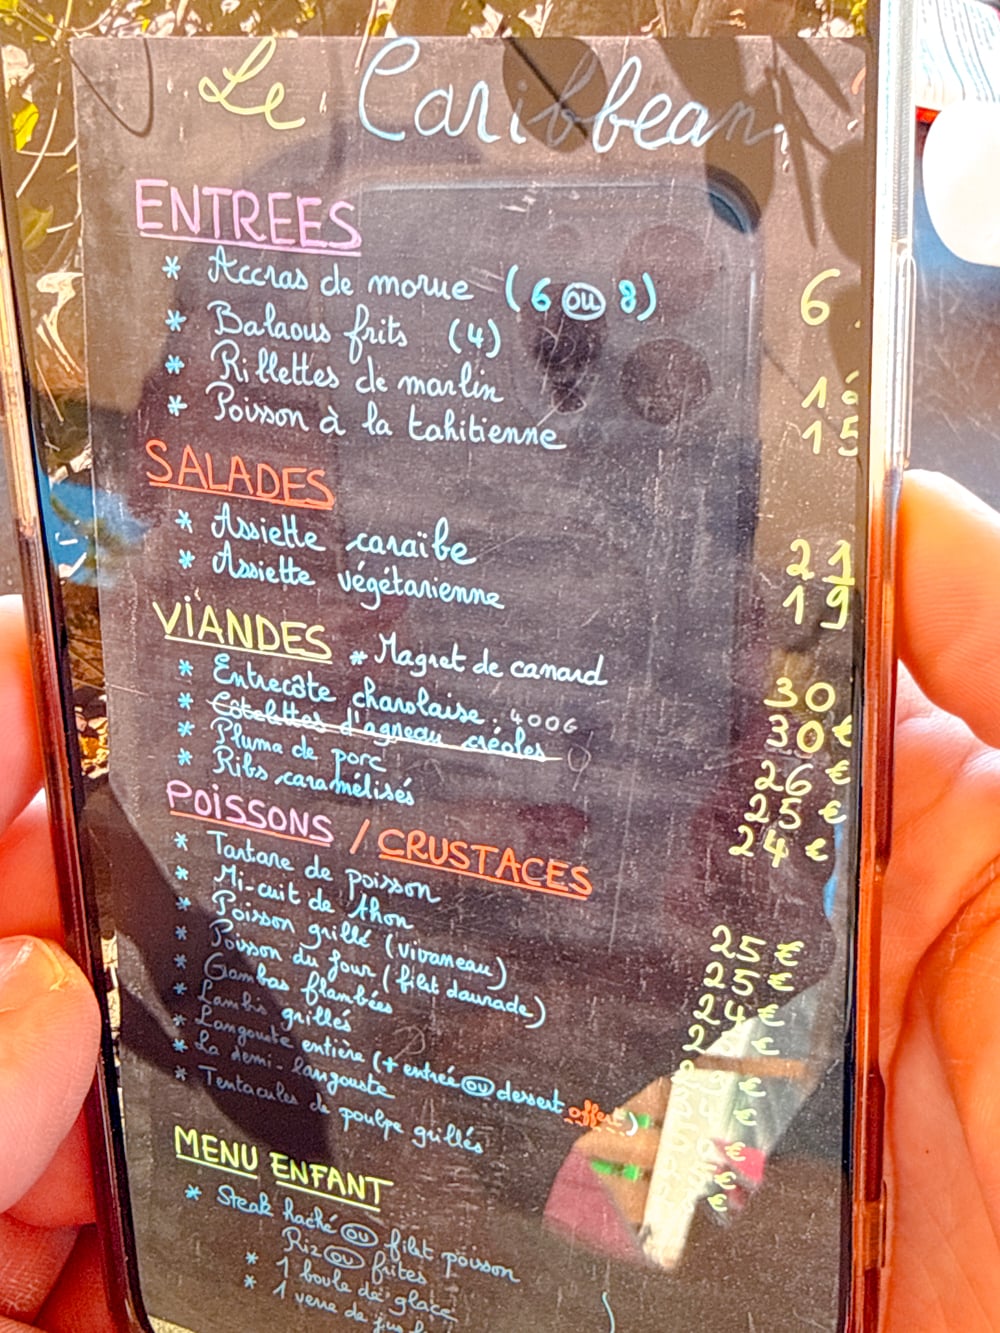 Le Caribbean
ENTREES
* Accras de morue (6 ou 8) 6
* Balaous frits (4)
* Rillettes de marlin
* Poisson à la tahitienne 15
SALADES
* Assiette caraïbe 21
* Assiette végétarienne 19
VIANDES * Magret de canard 30
* Entrecôte charolaise. 400G 30€
* Côtelettes d'agneau créoles 26 €
* Pluma de porc 25 €
* Ribs caramélisés 24 €
POISSONS / CRUSTACES
* Tartare de poisson 25 €
* Mi-cuit de thon 25 €
* Poisson grillé (Vivaneau) 24 €
* Poisson du jour (filet daurade) €
* Gambas flambées €
* Lambis grillés €
* Langouste entière (+ entrée ou dessert offert) €
* La demi-langouste €
* Tentacules de poulpe grillés €
MENU ENFANT
* Steak haché ou filet poisson
Riz ou frites
* 1 boule de glace
* 1 verre de jus